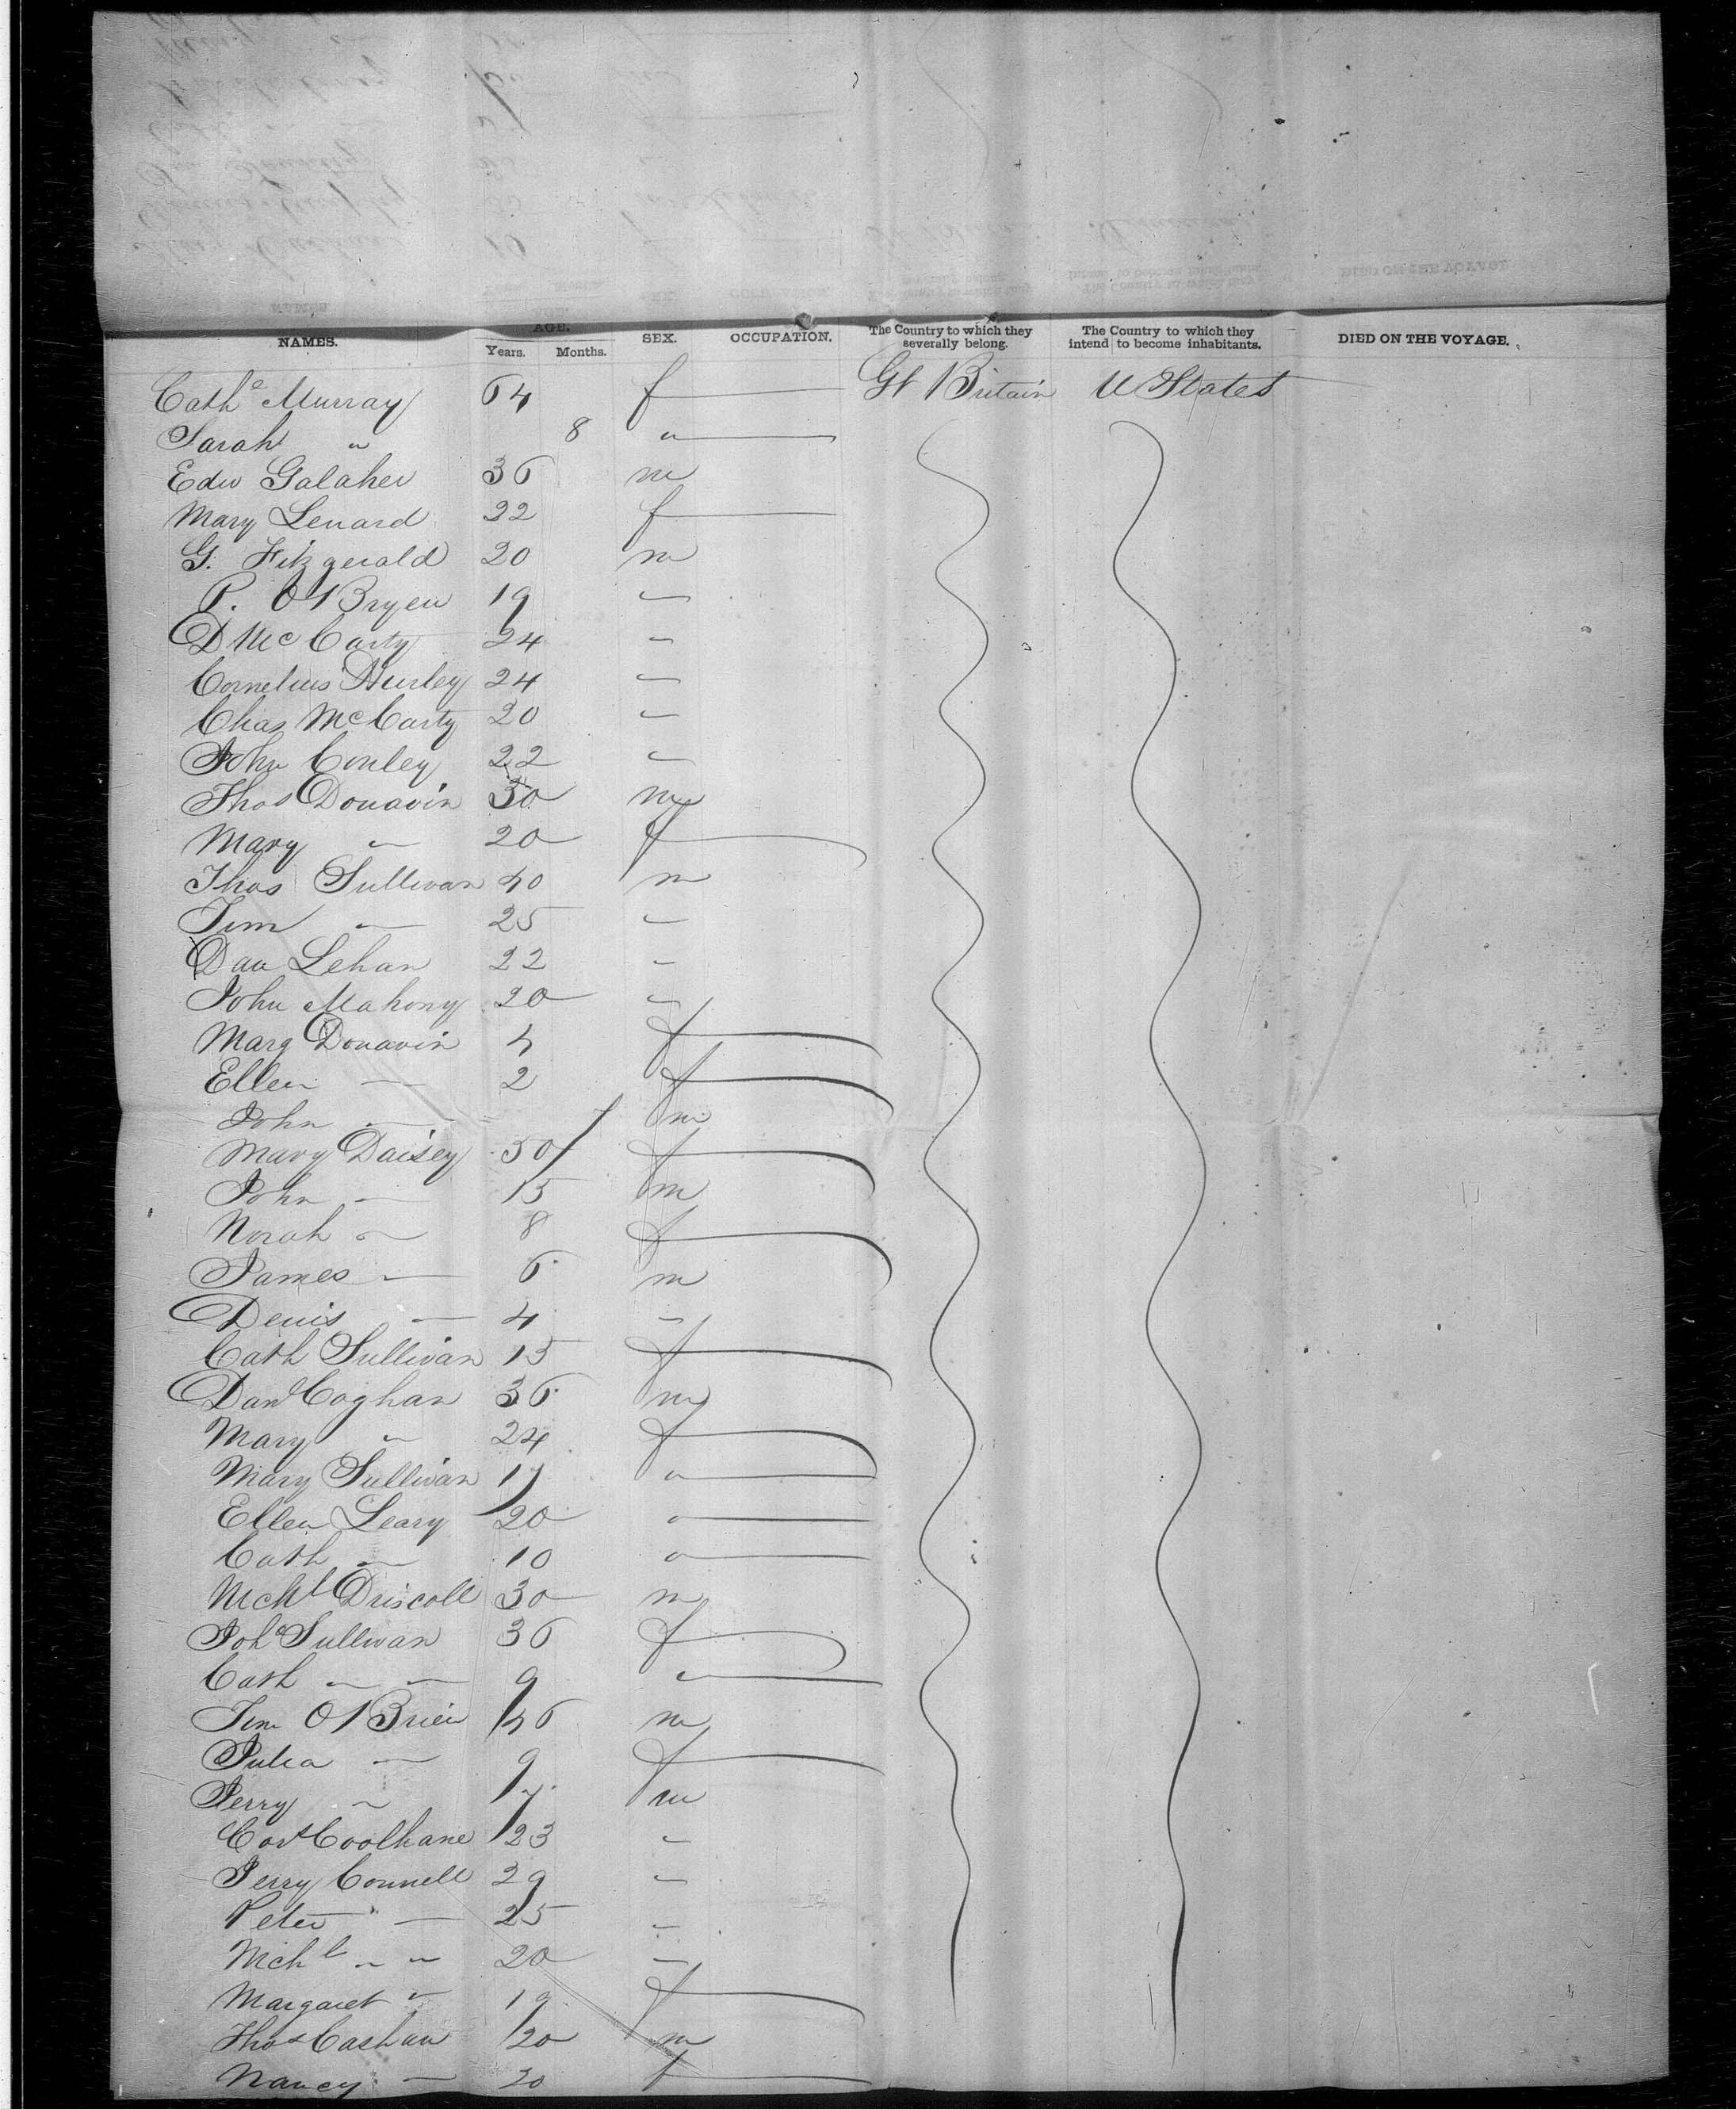 NAMES. AGE. SEX. OCCUPATION. The Country to which they severally belong. The Country to which they intend to become inhabitants. DIED ON THE VOYAGE.
Years. Months.
Cathe Murray 64 f Gt Britain U States
Sarah " 8 "
Edw Galaher 36 m
Mary Lenard 22 f
G. Fitzgerald 20 m
P. O'Bryen 19 "
D McCarty 24 "
Cornelius Hurley 24 "
Chas McCarty 20 "
John Conley 22 "
Thos Donavin 30 m
Mary " 20 f
Thos Sullivan 40 m
Tim " 25 "
Dan Lehan 22 "
John Mahony 20 "
Marg Donavin 4 f
Ellen " 2 f
John " m
Mary Daisey 50 f
John " 15 m
Norah " 8 f
James " 6 m
Denis " 4 "
Cath Sullivan 15 f
Danl Coghan 36 m
Mary " 24 f
Mary Sullivan 17 "
Ellen Leary 20 "
Cath " 10 "
Michl Driscoll 30 m
Joha Sullivan 36 f
Cath " " 9 "
Tim O'Brien 46 m
Julia " 9 f
Jerry " 7 m
Corn Coolhane 23 "
Jerry Connell 29 "
Peter " 25 "
Michl " " 20 "
Margaret " 19 f
Thos Cashan 20 m
Nancy " 20 f